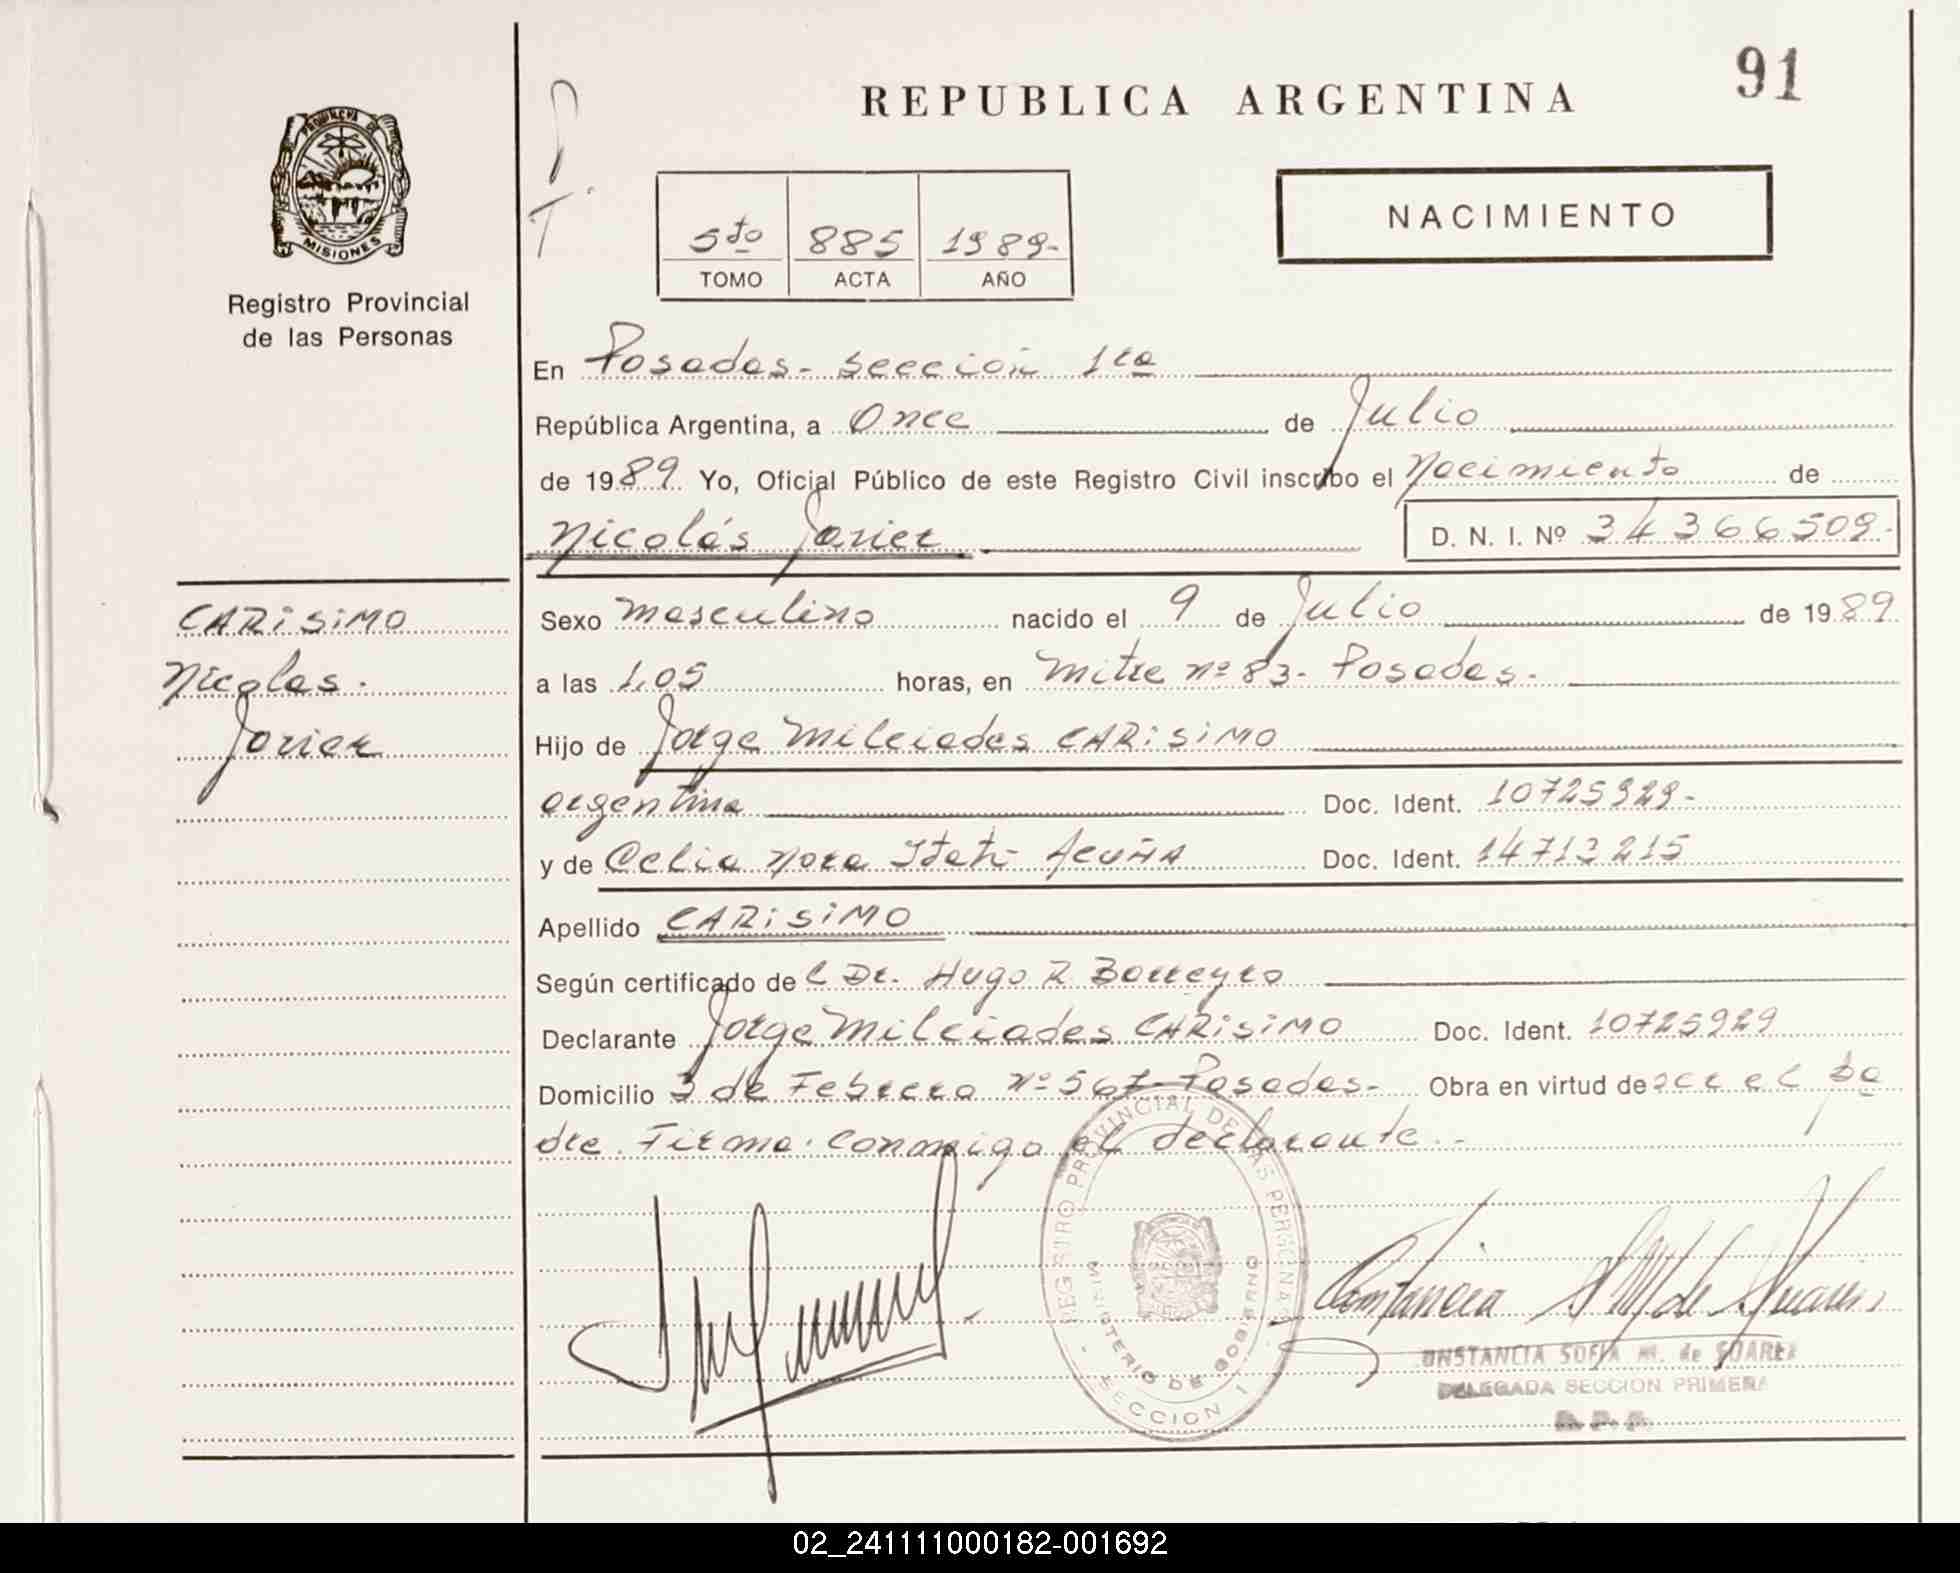 91
REPUBLICA ARGENTINA
PROVINCIA DE
MISIONES
Registro Provincial
de las Personas
5to 885 1989-
TOMO ACTA AÑO
NACIMIENTO
En Posadas- Sección 1ra
República Argentina, a Once de Julio
de 1989. Yo, Oficial Público de este Registro Civil inscribo el Nacimiento de
Nicolás Javier D. N. I. Nº 34366509-
CARISIMO
Nicolas.
Javier
Sexo masculino nacido el 9 de Julio de 1989
a las 1,05 horas, en Mitre nº 83- Posadas-
Hijo de Jorge Milciades CARISIMO
argentina Doc. Ident. 10725929-
y de Celia Nora Itatí Acuña Doc. Ident. 14713215
Apellido CARISIMO
Según certificado del Dr. Hugo R Borreyro
Declarante Jorge Milciades CARISIMO Doc. Ident. 10725929
Domicilio 3 de Febrero nº 567- Posadas- Obra en virtud de ser el pa
dre. Firma conmigo el declarante.-
REGISTRO PROVINCIAL DE LAS PERSONAS
MINISTERIO DE GOBIERNO
SECCION 1
Constancia S M de Suarez
ONSTANCIA SOFIA M. de SOAREZ
DELEGADA SECCION PRIMERA
02_241111000182-001692